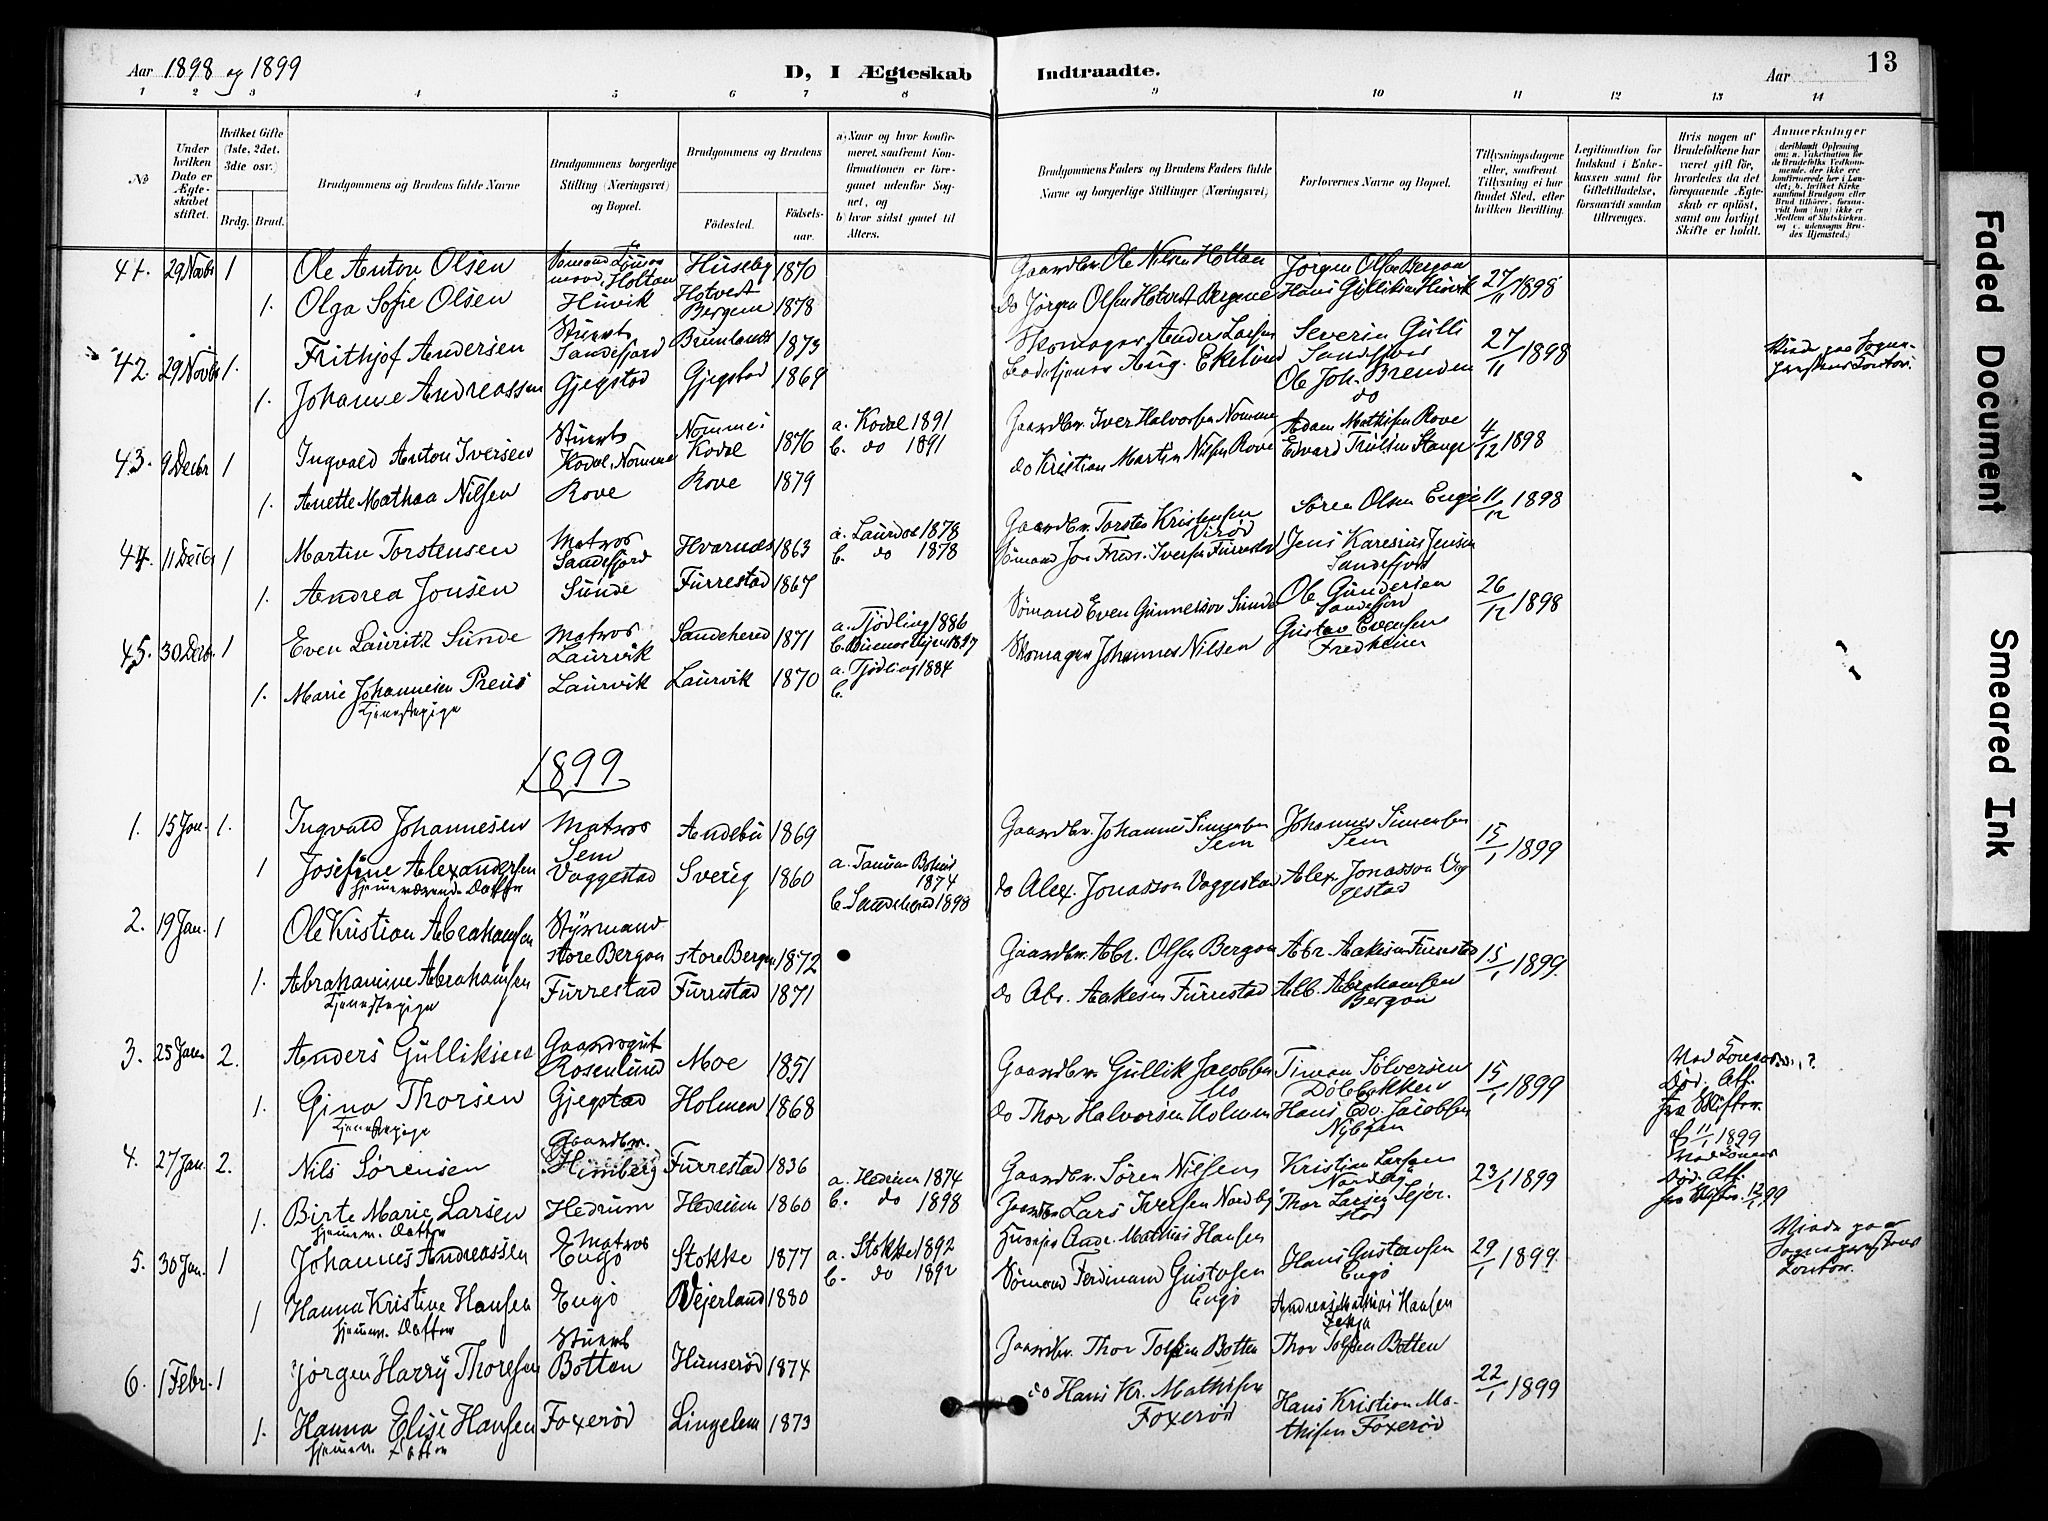 Aar 1898 og 1899
D, I Ægteskab
Indtraadte.
Aar
13
1 2 3 4 5 6 7 8 9 10 11 12 13 14
No
Under hvilken Dato er Ægteskabet stiftet.
Hvilket Gifte (1ste, 2det, 3die osv.)
Brdg. Brud.
Brudgommens og Brudens fulde Navne
Brudgommens borgerlige Stilling (Næringsvei) og Bopæl.
Brudgommens og Brudens
Fødested.
Fødselsaar.
a) Naar og hvor konfirmeret, saafremt Konfirmationen er foregaaet udenfor Sognet, og
b) hvor sidst gaaet til Alters.
Brudgommens Faders og Brudens Faders fulde Navne og borgerlige Stillinger (Næringsvei)
Forlovernes Navne og Bopæl.
Tillysningsdagene eller, saafremt Tillysning ei har fundet Sted, efter hvilken Bevilling.
Legitimation for Indskud i Enkekassen samt for Giftetilladelse, forsaavidt saadan tiltrænges.
Hvis nogen af Brudefolkene har været gift før, hvorledes da det foregaaende Ægteskab er opløst, samt om lovligt Skifte er holdt.
Anmærkninger (deriblandt Oplysning om: a. Vakcination for de Brudefolks Vedkommende, der ikke ere konfirmerede her i Landet; b. hvilket Kirkesamfund Brudgom eller Brud tilhører, forsaavidt han (hun) ikke er Medlem af Statskirken, og c. udensogns Brudes Hjemsted.)
41. 29 Novbr 1 Ole Anton Olsen Holtan Huseby 1870 Gaardbr. Ole Nilsen Holtan Jørgen Olsen Bergan 27/11 1898
1. Olga Sofie Olsen Huvik Hotvedt Bergene 1878 do Jørgen Olsen Hotvedt Bergene Hans Gulliksen Huvik
42. 29 Novbr 1. Frithjof Andersen Stuert Sandefjord Brunlanes 1873 Skomager Anders Larsen Severin Gulli Sandefjord 27/11 1898
1. Johanne Andreassen Gjegstad Gjegstad 1869 Aug. Ekelund Ole Joh. Brenden do
43. 9 Decbr 1 Ingvald Anton Iversen Stuert Kodal, Nomme Nomme i Kodal 1876 a. Kodal 1891 b. do 1891 Gaardbr. Iver Halvorsen Nomme Adam Mathisen Rove 4/12 1898
1. Anette Mathea Nilsen Rove Rove 1879 do Kristian Martin Nilsen Rove Edvard Trulsen Hauge
44. 11 Decbr 1 Martin Torstensen Matros Sandefjord Hvarnes 1863 a. Laurdal 1878 b. do 1878 Gaardbr. Torsten Kristensen Virød Søren Olsen Engø 11/12 1898
1. Andrea Jonsen Sunde Furrestad 1867 Sømand Jon Fredr. Iversen Furrestad Jens Karesius Jensen Sandefjord
45. 30 Decbr. 1 Even Lauritz Sunde Matros Laurvik Sandehered 1871 a. Tjødling 1886 b. Buenos Ajres 1897 Sømand Even Gunnelsen Sunde Ole Gundersen Sandefjord 26/12 1898
1. Marie Johannesen Preus Tjenestepige Laurvik Laurvik 1870 a. Tjødling 1884 b. Skomager Johannes Nilsen Gustav Evensen Fredheim
1899
1. 15 Jan. 1. Ingvald Johannesen Matros Sem Andebu 1869 Gaardbr. Johannes Simensen Sem Johannes Simensen Sem 15/1 1899
1 Josefine Alexandersen hjemmeværende Datter Vaggestad Sverig 1860 a. Tanum Bohus 1874 b. Sandehered 1898 do Alex. Jonasson Vaggestad Alex. Jonasson Vaggestad
2. 19 Jan. 1 Ole Kristian Abrahamsen Styrmand store Bergan store Bergan 1872 Gaardbr. Abr. Olsen Bergan Abr. Aakesen Furrestad 15/1 1899.
1. Abrahamine Abrahamsen Tjenestepige Furrestad Furrestad 1871 do Abr. Aakesen Furrestad Alb. Abrahamsen Bergan
3. 25 Jan. 2. Anders Gulliksen Gaardsgut Rosenlund Moe 1851 Gaardbr. Gullik Jacobsen Mo Timan Sølversen Dølebakken 15/1 1899 død. Att. fra Skifter. af 11/1 1899
1. Gina Thorsen Tjenestepige Gjegstad Holmen 1868 do Thor Halvorsen Holmen Hans Edv. Jacobsen Nybyen
4. 27 Jan. 2. Nils Sørensen Gaardbr. Himberg Furrestad 1836 Gaardbr. Søren Nilsen Kristian Larsen Nordby 23/1 1899 død. Att.
1. Birte Marie Larsen hjemm. Datter Hedrum Hedrum 1860 a. Hedrum 1874 b. do 1898 Gaardbr Lars Iversen Nordby Thor Larsen
5. 30 Jan. 1 Johannes Andreassen Matros Engø Stokke 1877 a. Stokke 1892 b. do 1892 Andr. Mathias Hansen Hans Gustavsen Engø 29/1 1899. Viede paa Sognepræstens Kontor.
1 Hanna Kristine Hansen hjemm. Datter Engø Vejerland 1880 Sømand Ferdinand Gustavsen Engø Andreas Mathias Hansen
6. 1 Febr. 1 Jørgen Harry Thoresen Stuert Botten Hunserød 1874 Gaardbr. Thor Tolfsen Botten Thor Tolfsen Botten 22/1 1899
1. Hanna Elise Hansen hjemm. Datter Foxerød Lingelem 1873 do Hans Kr. Mathisen Foxerød Hans Kristian Mathisen Foxerød
Faded Document
Smeared Ink